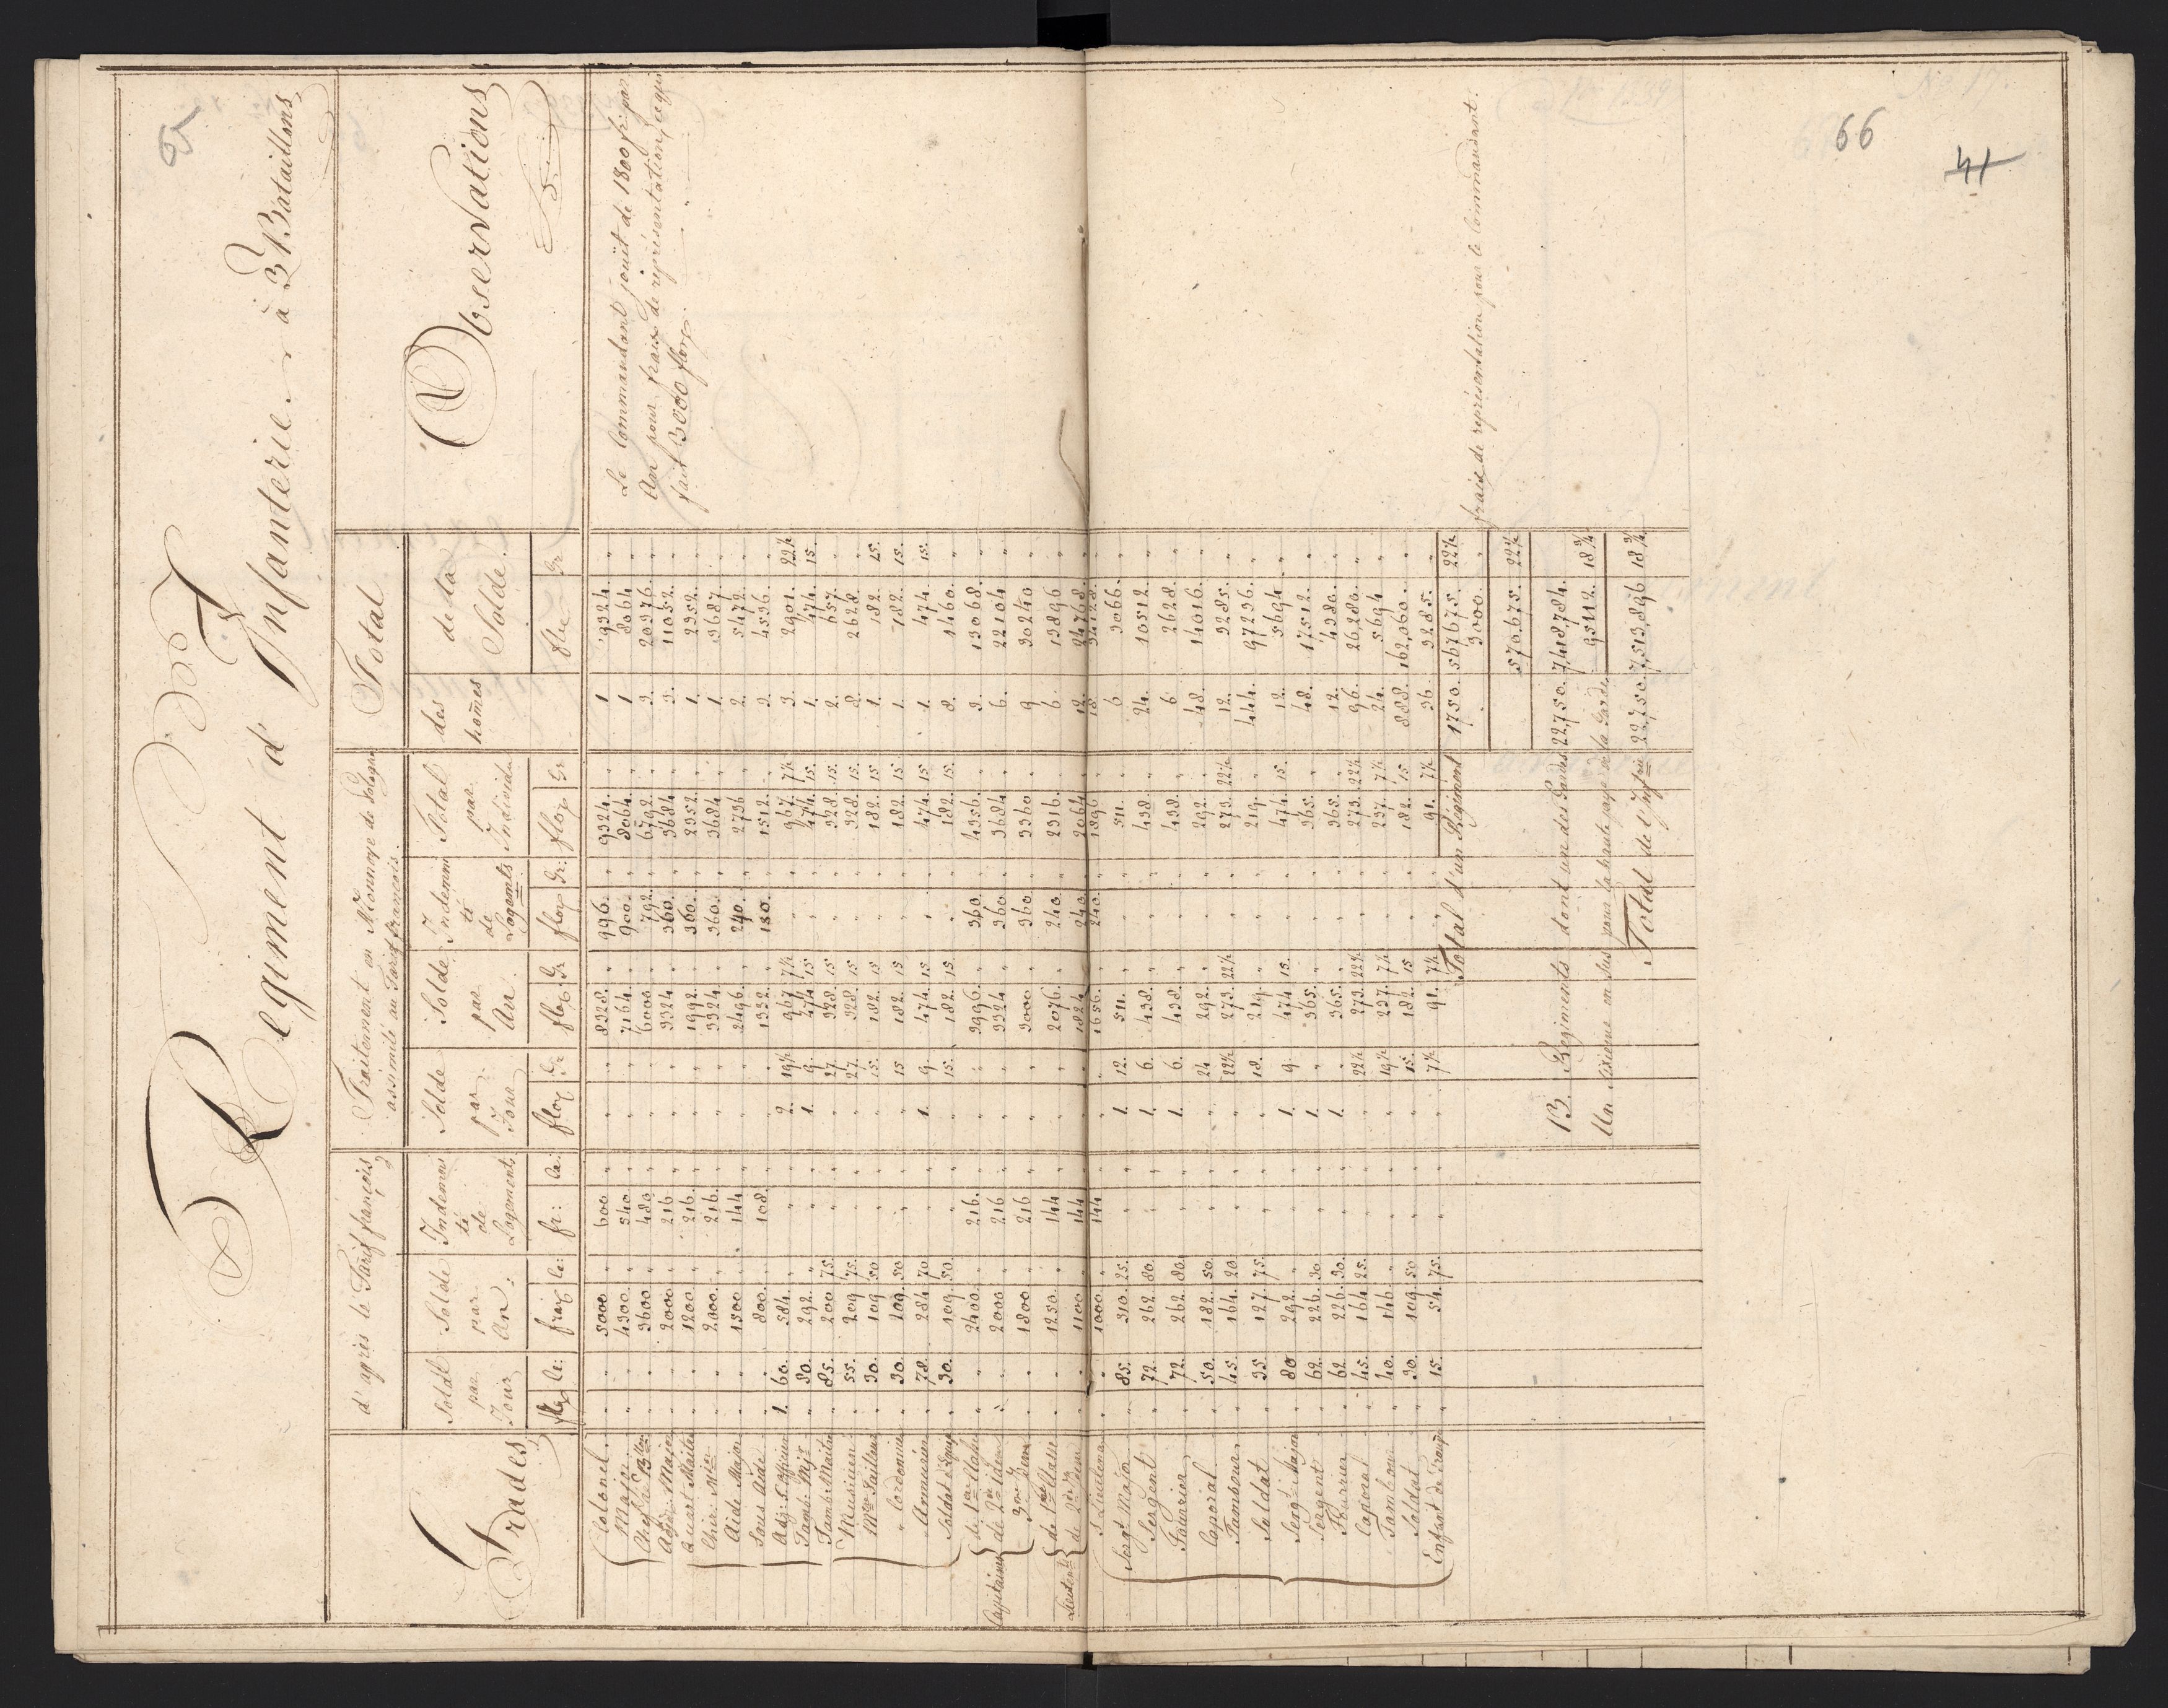 Regiment d'Infanterie à 3 Bataillons
Grades | d'après le Tarif françois | Traitement en Monnoye de Pologne assimilé au Tarif francois | Total | Observations
Solde par Jour | Solde par An: | Indemnité de Logement | Solde par Jour | Solde par An. | Indemnité de Logemts | Total par Individu | des homes | de la Solde
Colonel. | " | " | 5000 | " | 600 | " | " | " | 8328. | " | 996. | " | 9324. | " | 1 | 9324. | "
Major. | " | " | 4300. | " | 540 | " | " | " | 7164 | " | 900. | " | 8064. | " | 1 | 8064 | "
Chef de Bllon | " | " | 3600. | " | 480 | " | " | " | 6000 | " | 792. | " | 6792. | " | 3. | 20376. | "
Adjt: Major | " | " | 2000. | " | 216 | " | " | " | 3324 | " | 360. | " | 3684 | " | 3. | 11052. | "
Quart Maitre | " | " | 1200. | " | 216. | " | " | " | 1992. | " | 360. | " | 2352. | " | 1. | 2352. | "
Chir: Mjor | " | " | 2000. | " | 216. | " | " | " | 3324 | " | 360. | " | 3684 | " | 1. | 3687. | "
Aide Major | " | " | 1500 | " | 144 | " | " | " | 2496. | " | 240. | " | 2736 | " | 2. | 5472. | "
Sous Aide | " | " | 800. | " | 108. | " | " | " | 1332. | " | 180. | " | 1512. | " | 3. | 4536. | "
Adj: S. Officier | 1. | 60. | 584. | " | " | " | 2. | 19½ | 967 | 7½ | " | " | 967. | 7½ | 3. | 2901. | 22½
Tamb: Mjr | " | 80. | 292. | " | " | " | 1. | 9. | 474 | 15 | " | " | 474. | 15. | 1. | 474. | 15.
Tamb: Maitre | " | 85. | 200 | 75. | " | " | " | 27 | 328. | 15 | " | " | 328. | 15. | 2. | 657. | "
Musicien | " | 55. | 209 | 75. | " | " | " | 27. | 328. | 15 | " | " | 328. | 15. | 8. | 2628. | "
Mtre Tailleur | " | 30. | 109 | 50 | " | " | " | 15. | 182. | 15 | " | " | 182. | 15 | 1. | 182. | 15.
" Cordonier | " | 30. | 109. | 50 | " | " | " | 15 | 182. | 15. | " | " | 182. | 15 | 1. | 182. | 15.
Armurier | " | 78. | 284 | 70 | " | " | 1. | 9. | 474. | 15 | " | " | 474. | 15 | 1. | 474. | 15.
Soldat | " | 30. | 109. | 50. | " | " | " | 15. | 182. | 15. | " | " | 182. | 15. | 8. | 1460. | "
Capitaine de 1re Classe | " | " | 2400. | " | 216. | " | " | " | 3996. | " | 360. | " | 4356. | " | 3. | 13068. | "
de 2de Idem | " | " | 2000 | " | 216 | " | " | " | 3324 | " | 360 | " | 3684 | " | 6. | 22104 | "
3me Idem | " | " | 1800 | " | 216 | " | " | " | 3000 | " | 360. | " | 3360 | " | 9 | 30240 | "
Lieutent de 1re Classe | " | " | 1250. | " | 144 | " | " | " | 2076. | " | 240. | " | 2316. | " | 6. | 13896 | "
de 2de Idem | " | " | 1100 | " | 144 | " | " | " | 1824 | " | 240 | " | 2064 | " | 12. | 24768. | "
S. Lieutenant | " | " | 1000 | " | 144 | " | " | " | 1656. | " | 240. | " | 1896 | " | 18. | 34128. | "
Sergt Major | " | 85. | 310. | 25. | " | " | 1. | 12. | 511. | " | " | " | 511. | " | 6 | 3066. | "
Sergent | " | 72. | 262. | 80. | " | " | 1. | 6. | 438. | " | " | " | 438. | " | 24. | 10512. | "
Fourrier | " | 72. | 262. | 80. | " | " | 1. | 6. | 438. | " | " | " | 438. | " | 6. | 2628. | "
Caporal | " | 50. | 182. | 50. | " | " | " | 24 | 292. | " | " | " | 292. | " | 48. | 14016. | "
Tambour | " | 45. | 164. | 20 | " | " | " | 22½ | 273. | 22½ | " | " | 273. | 22½ | 12. | 3285. | "
Soldat | " | 35. | 127. | 75. | " | " | " | 18. | 219. | " | " | " | 219. | " | 444. | 97236. | "
Sergt: Major | " | 80 | 292. | " | " | " | 1. | 9. | 474 | 15. | " | " | 474. | 15. | 12. | 5694. | "
Sergent | " | 62. | 226. | 30 | " | " | 1. | " | 365. | " | " | " | 365. | " | 48. | 17512. | "
Fourrier | " | 62 | 226. | 30. | " | " | 1. | " | 365. | " | " | " | 365. | " | 12. | 4380. | "
Caporal | " | 45. | 164. | 25. | " | " | " | 22½ | 273. | 22½ | " | " | 273. | 22½ | 96. | 26280. | "
Tambour | " | 40. | 146. | " | " | " | " | 19½ | 237. | 7½ | " | " | 237. | 7½ | 24. | 5694 | "
Soldat | " | 30. | 109. | 50 | " | " | " | 15. | 182. | 15 | " | " | 182. | 15 | 888. | 162,060. | "
Enfant de Troupe | " | 15. | 54. | 75. | " | " | " | 7½ | 91. | 7½ | " | " | 91. | 7½ | 36. | 3285. | "
Total d'un Régiment | 1750. | 567675. | 22½
3000. | " | fraix de représentation pour le Commandant.
570,675. | 22½
13. Regiments dont un des Gardes | 22,750. | 7,418,784. | 18¾
Un Sixieme en sus pour la haute paye de la Garde | 95112. | 18¾
Total de l'Inftrie | 22,750. | 7,513,896 | 18¾
Le Commandant jouit de 1800 fr: par
An pour fraix de représentation, ce qui
fait 3000 flor.
66
41